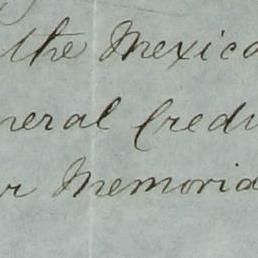 the Mexica
neral Credi
r Memoria